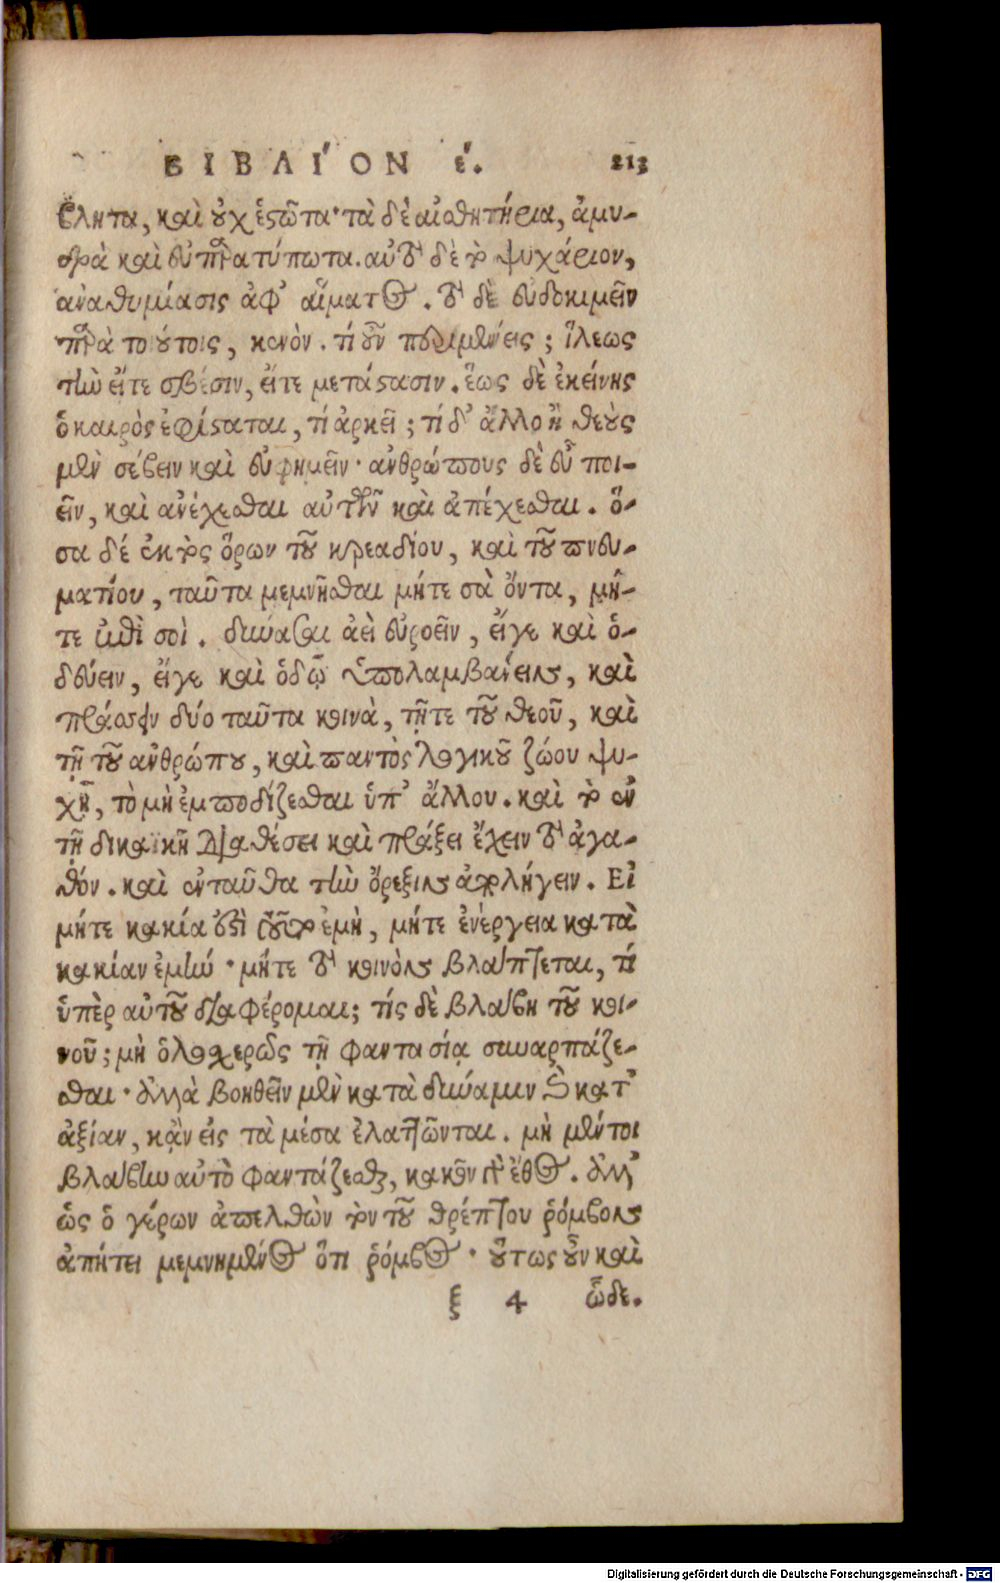 ΒΙΒΛΙ´ΟΝ έ. 213
βλητα, καὶ οὐχ ἑστῶτα· τὰ δὲ αἰσθητήρια, ἀμυ-
δρὰ καὶ εὐπαρατύπωτα. αὐτὸ δὲ τὸ ψυχάριον,
ἀναθυμίασις ἀφ' αἵματος. τὸ δὲ εὐδοκιμεῖν
παρὰ τοιούτοις, κενόν. τί οὖν περιμένεις; ἵλεως
τὴν εἴτε σβέσιν, εἴτε μετάστασιν. ἕως δὲ ἐκείνης
ὁ καιρὸς ἐφίσταται, τί ἀρκεῖ; τί δ' ἄλλο ἢ θεοὺς
μὲν σέβειν καὶ εὐφημεῖν· ἀνθρώπους δὲ εὖ ποι-
εῖν, καὶ ἀνέχεσθαι αὐτῶν καὶ ἀπέχεσθαι. ὅ-
σα δέ ἐκτὸς ὅρων τοῦ κρεαδίου, καὶ τοῦ πνευ-
ματίου, ταῦτα μεμνῆσθαι μήτε σὰ ὄντα, μή-
τε ἐπὶ σοὶ. δύνασαι ἀεὶ εὐροεῖν, εἴγε καὶ ὁ-
δεύειν, εἴγε καὶ ὁδῷ ὑπολαμβάνειν, καὶ
πράσσειν δύο ταῦτα κοινὰ, τῇ τε τοῦ θεοῦ, καὶ
τῇ τοῦ ἀνθρώπου, καὶ παντὸς λογικοῦ ζώου ψυ-
χῇ, τὸ μὴ ἐμποδίζεσθαι ὑπ' ἄλλου. καὶ τὸ ἐν
τῇ δικαϊκῇ διαθέσει καὶ πράξει ἔχειν τὸ ἀγα-
θόν. καὶ ἐνταῦθα τὴν ὄρεξιν ἀπολήγειν. Εἰ
μήτε κακία ἐστὶ τοῦτο ἐμὴ, μήτε ἐνέργεια κατὰ
κακίαν ἐμὴν· μήτε τὸ κοινὸν βλάπτεται, τί
ὑπὲρ αὐτοῦ διαφέρομαι; τίς δὲ βλάβη τοῦ κοι-
νοῦ; μὴ ὁλοσχερῶς τῇ φαντασίᾳ συναρπάζε-
σθαι· ἀλλὰ βοηθεῖν μὲν κατὰ δύναμιν καὶ κατ'
ἀξίαν, κᾂν εἰς τὰ μέσα ἐλαττῶνται. μὴ μέντοι
βλάβην αὐτὸ φαντάζεσθαι, κακὸν γὰρ ἔθος. ἀλλ'
ὡς ὁ γέρων ἀπελθὼν τὸν τοῦ θρέπτου ῥόμβον
ἀπῄτει μεμνημένος ὅτι ῥόμβος· οὕτως οὖν καὶ
ξ 4 ὧδε.
Digitalisierung gefördert durch die Deutsche Forschungsgemeinschaft - DFG